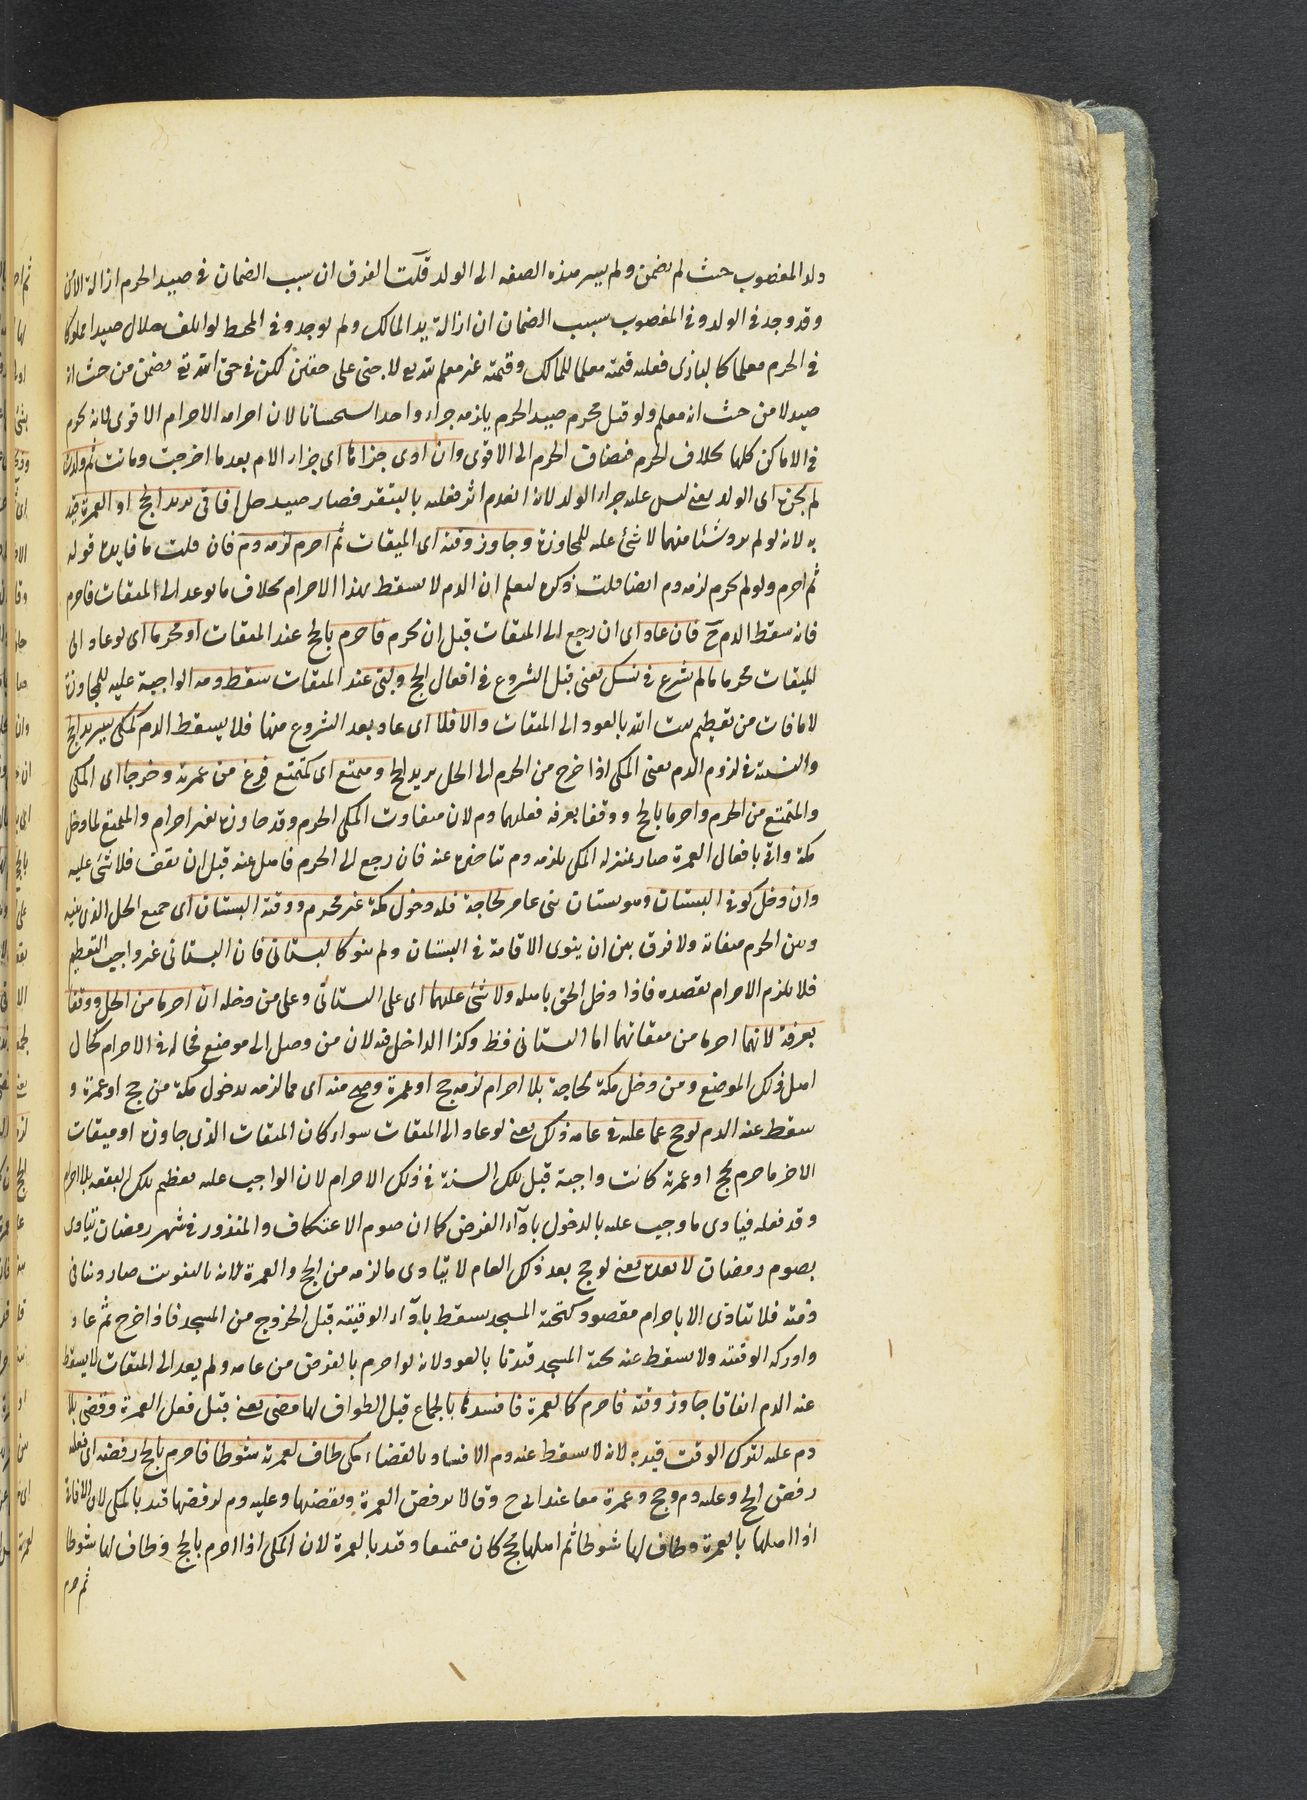 ولد المغصوب حيث لم يضمن ولم يسر هذه الصفة الى الولد قلت الفرق ان سبب الضمان في صيد الحرم ازالة الامن
وقد وجد في الولد وفي المغصوب سبب الضمان ان ازالة يد المالك ولم يوجد وفي المحيط لو اتلف حلال صيدا مملوكا
في الحرم معلما كالبازي فعليه قيمته معلما للمالك وقيمته غير معلم لله تع لا جنى على حقين لكن في حق الله تع يضمن من حيث انه
صيد لا من حيث انه معلم ولو قتل محرم صيد الحرم يلزمه جزاء واحد استحسانا لان احرامه الاحرام الاقوى لانه يحرم
في الاماكن كلها بخلاف الحرم فيضاف الحرم الى الاقوى وان ادى جزائها اى جزاء الام بعدما اخرجت وماتت ثم ولدت
لم يجزه اى الولد يعنى ليس عليه جزاء الولد لانه انعدم اثر فعله بالتقدير فصار صيد حل افاقي يريد الحج او العمرة قيد
به لانه لو لم يرد شئا منهما لا شئ عليه للمجاوزة وجاوز وقته اى الميقات ثم احرم لزمه دم فان قلت ما فايدة قوله
ثم احرم ولو لم يحرم لزمه دم ايضا قلت ذكره ليعلم ان الدم لا يسقط بهذا الاحرام بخلاف ما لو عاد الى الميقات فاحرم
فانه سقط الدم ح فان عاد اى ان رجع الى الميقات قبل ان يحرم فاحرم بالحج عند الميقات او محرما اى لو عاد الى
الميقات محرما ما لم يشرع في نسك يعنى قبل الشروع في افعال الحج ولبى عند الميقات سقط دمه الواجبة عليه للمجاوزة
لا ما فات من تعظيم بيت الله بالعود الى الميقات والا فلا اى عاد بعد الشروع منها فلا يسقط الدم كمكى يريد الحج
في لزوم الدم يعنى المكى اذا خرج من الحرم الى الحل يريد الحج ومتمتع اى كمتمتع فرغ من عمرته وخرجا اى المكى
والمتمتع من الحرم واحرما بالحج ووقفا بعرفة فعليهما دم لان ميقات المكى الحرم وقد جاوزه بغير احرام والمتمتع لما دخل
مكة واتى بافعال العمرة صار بمنزلة المكى يلزمه دم بتاخيره عنه فان رجع الى الحرم فاهل عنه قبل ان يقف فلا شئ عليه
وان دخل كوفي البستان وهو بستان بنى عامر لحاجة فله دخول مكة غير محرم ووقته البستان اى جميع الحل الذي بينه
وبين الحرم ميقاته ولا فرق بين ان ينوى الاقامة في البستان ولم ينو كالبستاني فان البستاني غير واجب التعظيم
فلا يلزم الاحرام بقصده فاذا دخل الحق باهله ولا شئ عليهما اى على البستاني وعلى من دخله ان احرما من الحل ووقفا
بعرفة لانهما احرما من ميقاتهما اما البستاني فظ وكذا الداخل فيه لان من وصل الى موضع فحاله في الاحرام كحال
اهل ذلك الموضع ومن دخل مكة لحاجة بلا احرام لزمه حج او عمرة وصح منه اى مما لزمه بدخول مكة من حج او عمرة و
سقط عنه الدم لو حج عما عليه في عامه ذلك يعنى لو عاد الى الميقات سواء كان الميقات الذي جاوزه او ميقات
الاخر فاحرم بحج او عمرة كانت واجبة قبل تلك السنة في ذلك الاحرام لان الواجب عليه تعظيم تلك البقعة بالاحرام
وقد فعله فيتادى ما وجب عليه بالدخول باداء الفرض كما ان صوم الاعتكاف والمنذور في شهر رمضان يتادى
بصوم رمضان لا بعده يعنى لو حج بعد ذلك العام لا يتادى ما لزمه من الحج والعمرة لانه بالتفويت صار دينا في
ذمته فلا يتادى الا باحرام مقصود كتحية المسجد يسقط باداء الوقتية قبل الخروج من المسجد فاذا خرج ثم عاد
وادركه الوقتية ولا يسقط عنه تحية المسجد قيدنا بالعود لانه لو احرم بالفرض من عامه ولم يعد الى الميقات لا يسقط
عنه الدم اتفاقا جاوز وقته فاحرم كالعمرة فافسدها بالجماع قبل الطواف لها مضى يعنى قبل فعل العمرة وقضى بلا
دم عليه لترك الوقت قيد به لانه لا يسقط عنه دم الافساد بالقضاء مكى طاف لعمرته شوطا فاحرم بالحج رفضه اى فعليه
رفض الحج وعليه دم وحج وعمرة معا عند ابى ح وقالا يرفض العمرة ويقضيها وعليه دم لرفضها قيد بالمكى لان الافاقي
اذا اهل بالعمرة وطاف لها شوطا ثم اهل بحج كان متمتعا وقيد بالعمرة لان المكى اذا احرم بالحج وطاف لها شوطا
ثم احرم